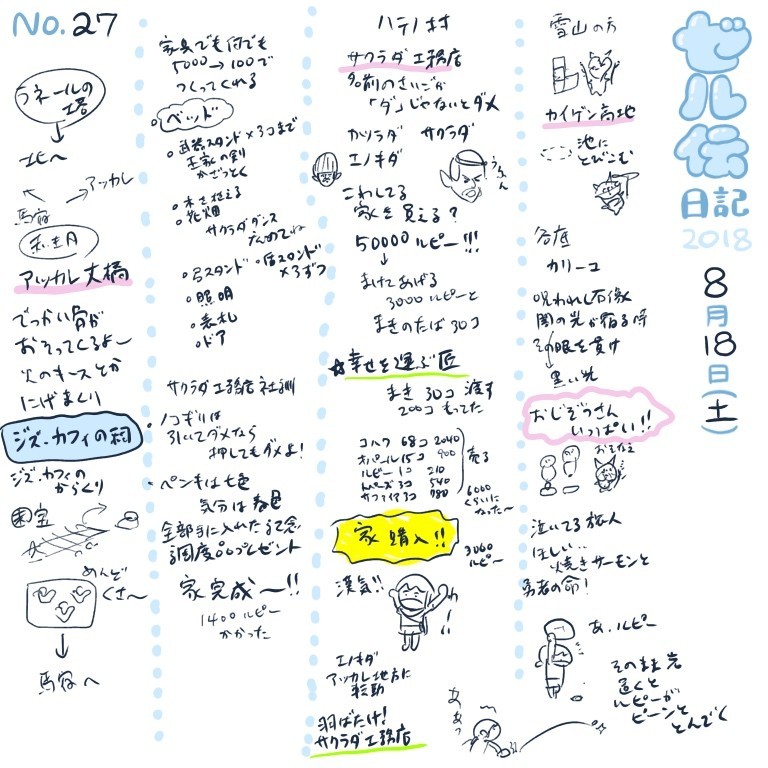 ゼル伝
日記
2018
8月18日(土)
雪山の方
カイゲン高地
池に
とびこむ
谷底
カリーコ
呪われし石像
闇の光が宿る時
その眼を貫け
黒い光
おじぞうさん
いっぱい!!
おそなえ
泣いてる旅人
ほしい..
焼きサーモンと
勇者の命!
あ、ルピー
そのまま先
進くと
ルピーが
ピーンと
とんでく
ハテノ村
サクラダ工務店
名前のさいごが
「ダ」じゃないとダメ
カツラダ サクラダ
エノキダ
うふん
こわしてる
家を買える?
50000ルピー!!!
まけてあげる
3000ルピーと
まきのたば30コ
☆幸せを運ぶ匠
まき30コ 渡す
200コもってた
コハク 68コ 2040
オパール15コ 900
ルピー1コ 210
トパーズ3コ 540
サファイア3コ 780
売る
6000
くらいに
なった〜
家購入!!
3000
ルピー〜
漢気!!
わー!!
エノキダ
アッカレ地方に
転勤
羽ばたけ!
サクラダ工務店
あぁっ
家具でも何でも
5000→100で
つくってくれる
ベッド
武器スタンド×3コまで
王家の剣
かざっとく
木を植える
花畑
サクラダダンス
弓スタンド
盾スタンド
×3ずつ
照明
表札
ドア
サクラダ工務店社訓
ノコギリは
引いてダメなら
押してもダメよ!
ペンキは七色
気分は春色
全部手に入れたら記念
調度品プレゼント
家完成〜!!
1400ルピー
かかった
No.27
ラネールの
塔
北へ
アッカレ
馬宿
赤き月
アッカレ大橋
でっかい骨が
おそってくるよー
火のキースとか
にげまくり
ジズ・カフィの祠
ジズ・カフィの
からくり
宝
めんど
くさ〜
馬宿へ